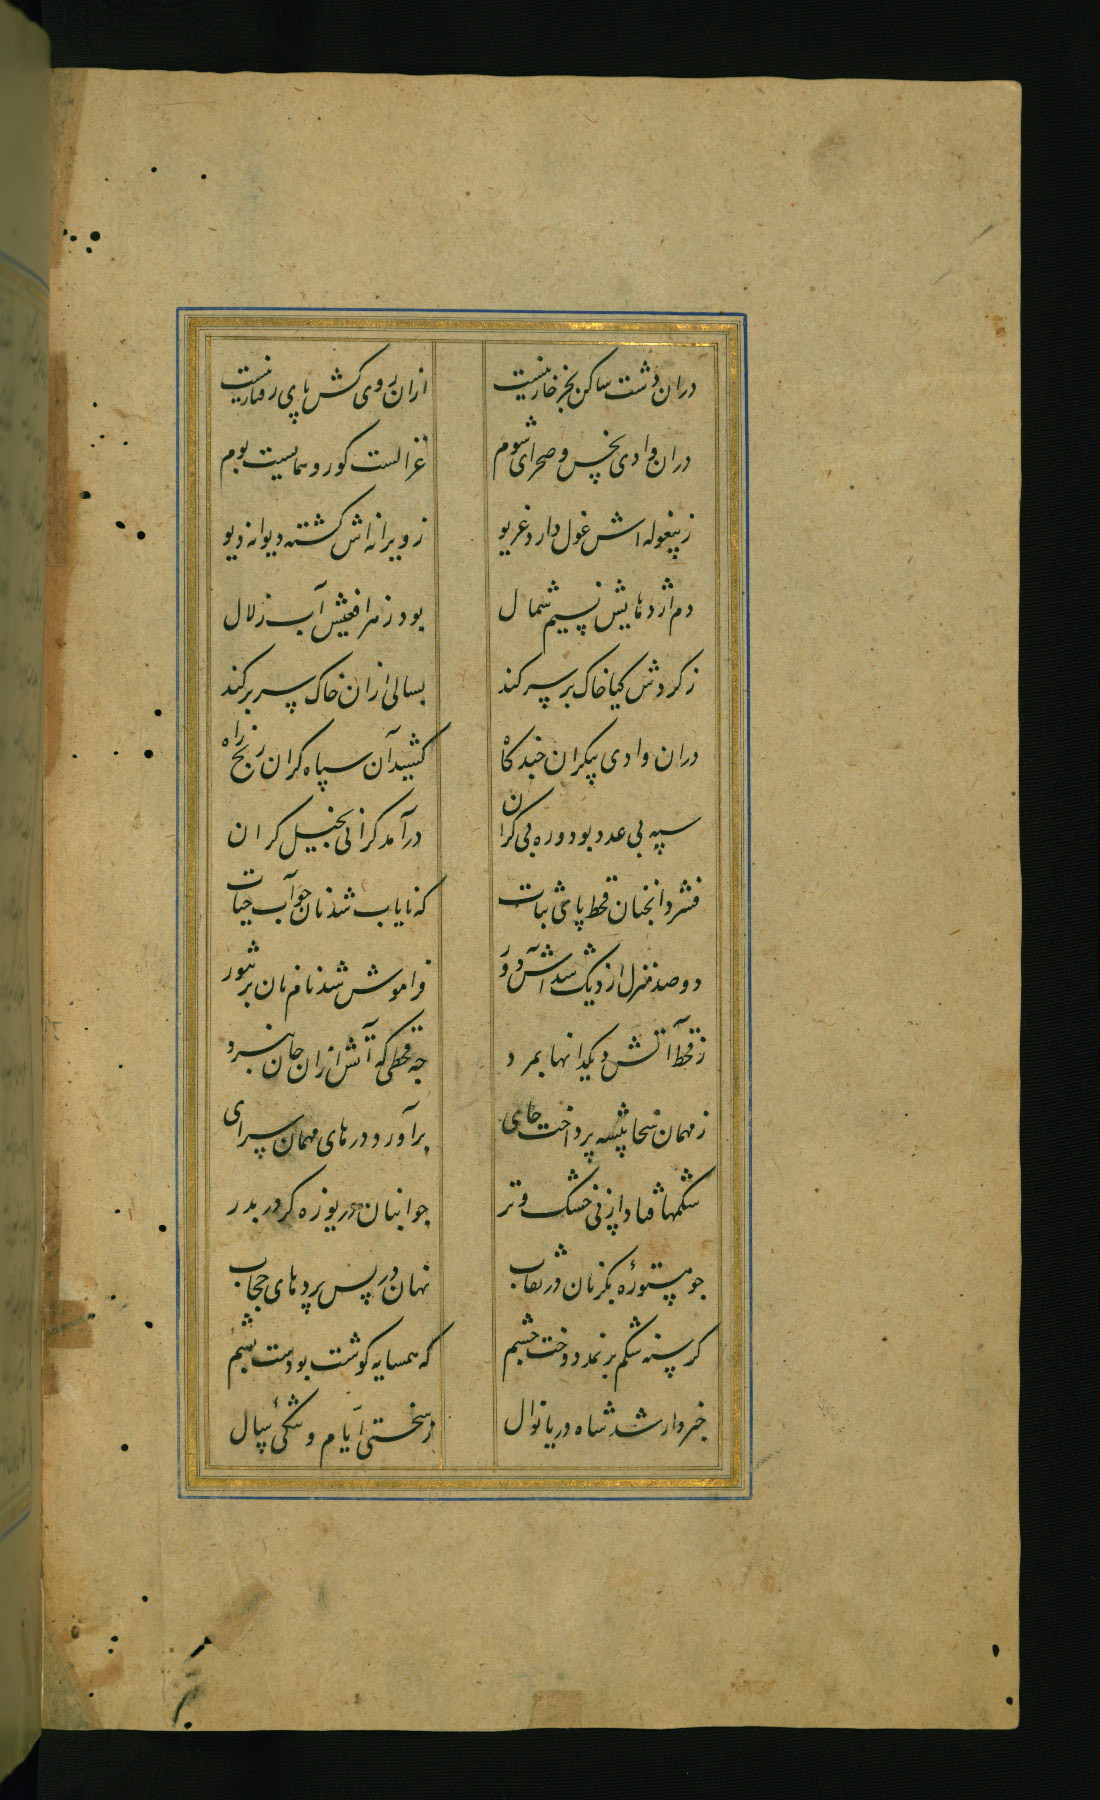 دران دشت ساکن بجز خار نیست ازان روی کش پای رفتار نیست
دران وادی نحس و صحرای شوم غزالست کور و هماییست بوم
ز پیغوله اش غول دارد غریو ز ویرانه اش کشته دیوانه دیو
دم اژدهایش نسیم شمال بود زهر افعیش آب زلال
ز کردش کیا خاک بر سر کند بسالی ازان خاک سر بر کند
دران وادی بیکران چندگاه کشید آن سپاه کران رنج راه
سپه بی عدد بود و ره بی کران درآمد کرانی بخیل کران
فشرد انچنان قحط پای ثبات که نایاب شد نان چو آب حیات
دو صد منزل از دیک شد آتش دور فراموش شد نام نان بر تنور
ز قحط آتش دیکدانها بمرد چه قحطی که آتش ازان جان نبرد
ز مهمان سخا پیشه پرداخت جای برآورد درهای مهمان سرای
شکمها فتاد از پی خشک و تر چو انبان دریوزه کر در بدر
چو مستوره بکر نان در نقاب نهان در پس پردهای حجاب
کرسنه شکم بر نمد دوخت چشم که همسایه کوشت بودست پشم
خبردار شد شاه دریا نوال ز سختی ایام و تنکی سال